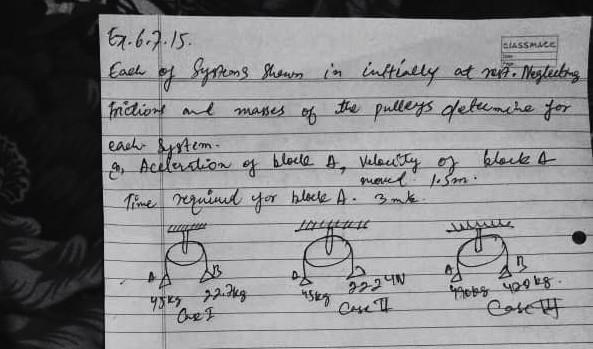 Ex. 6.7.15.
CLASSMATE
Each of Systems shown in initially at rest. Neglecting
frictions and masses of the pulleys determine for
each system.
a, Acceleration of block A, Velocity of block A
moved 1.5m.
Time required for block A. 3
A B A A B
45kg 22.2kg 45kg 222.4N 420kg.
Case I Case II Case III